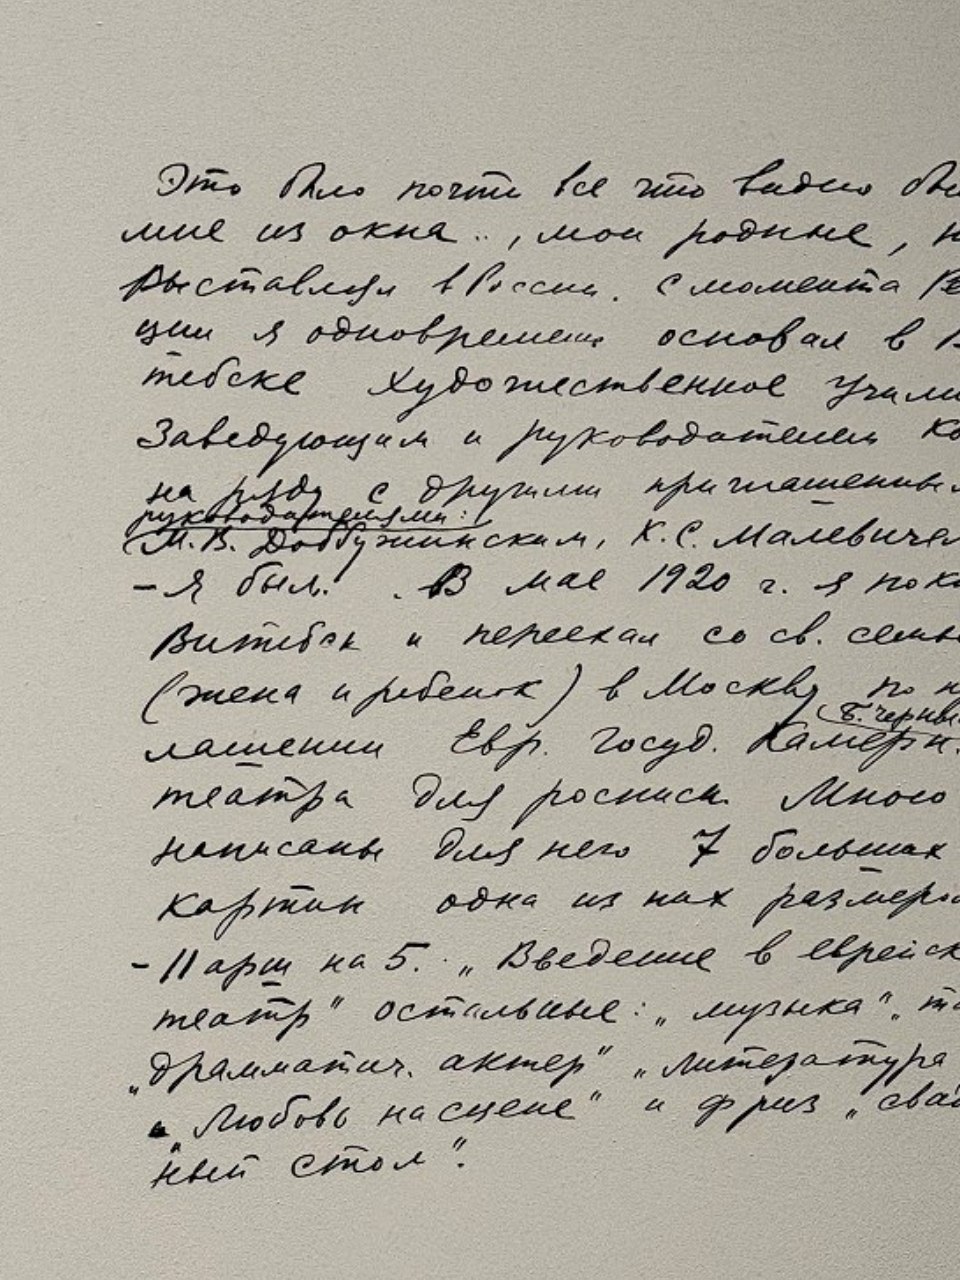 Это было почти все что видно бы
мне из окна .., мои родные, н
Выставлял в России. С момента Ре
ции я одновременно основал в В
тебске Художественное Учили
Заведующим и руководителем ко
на ряду с другими приглашенным
руководителями:
М.В. Добужинским, К.С. Малевиче
– я был. В мае 1920 г. я поки
Витебск и переехал со св. семье
(жена и ребенок) в Москву по п
(б. Черны
лашении Евр. Госуд. Камерн.
театра для росписи. Мною
написаны для него 7 больших
картин одна из них размеро
– 11 арш на 5. „Введение в еврейск
театр" остальные: „музыка", та
„драмматич. актер" „литература
и „Любовь на сцене" и фриз „сва
ный стол".